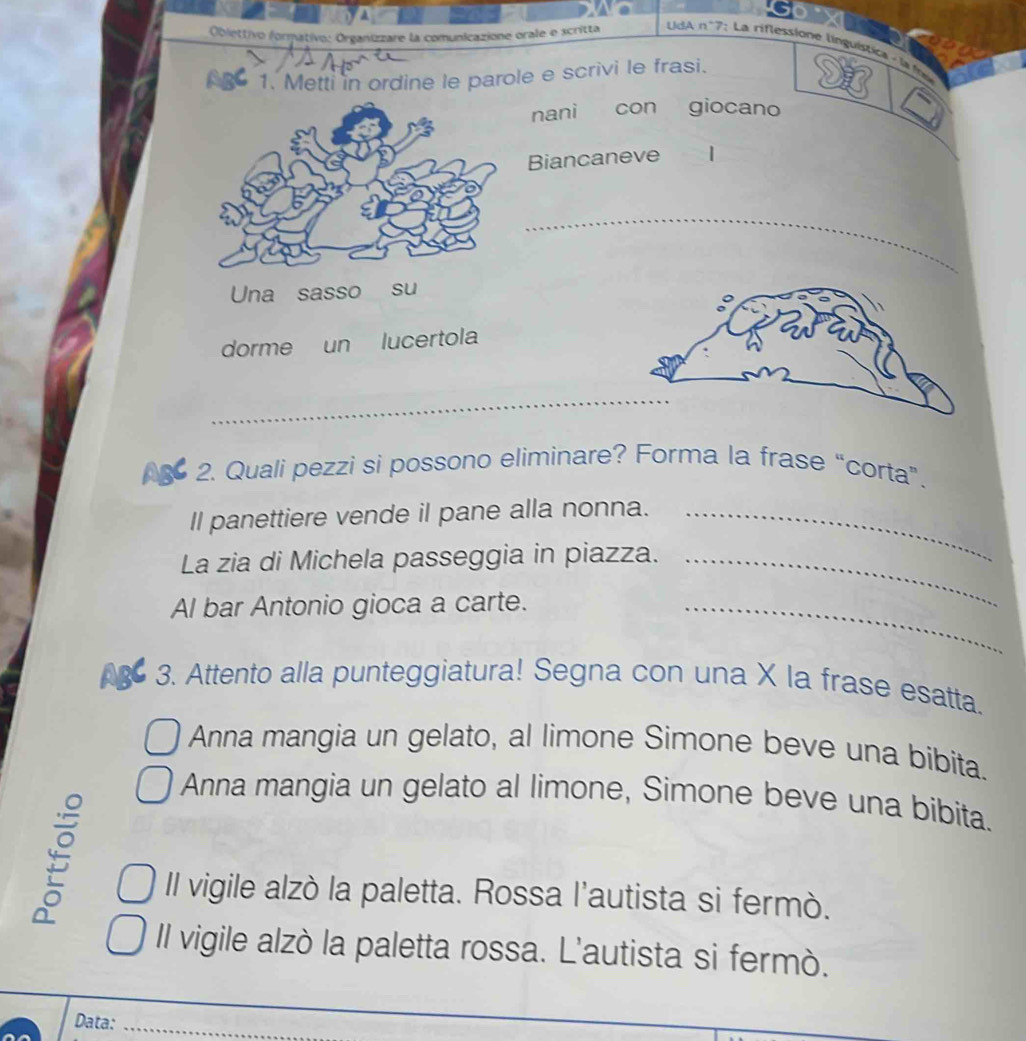 Obiettivo formativo: Organizzare la comunicazione orale e scritta
UdA n°7: La riflessione linguistica - la frase
ABC 1. Metti in ordine le parole e scrivi le frasi.
nani con giocano
Biancaneve I
Una sasso su
dorme un lucertola
ABC 2. Quali pezzi si possono eliminare? Forma la frase “corta”.
Il panettiere vende il pane alla nonna.
La zia di Michela passeggia in piazza.
Al bar Antonio gioca a carte.
ABC 3. Attento alla punteggiatura! Segna con una X la frase esatta.
Anna mangia un gelato, al limone Simone beve una bibita.
Anna mangia un gelato al limone, Simone beve una bibita.
Il vigile alzò la paletta. Rossa l'autista si fermò.
Il vigile alzò la paletta rossa. L'autista si fermò.
Portfolio
Data: